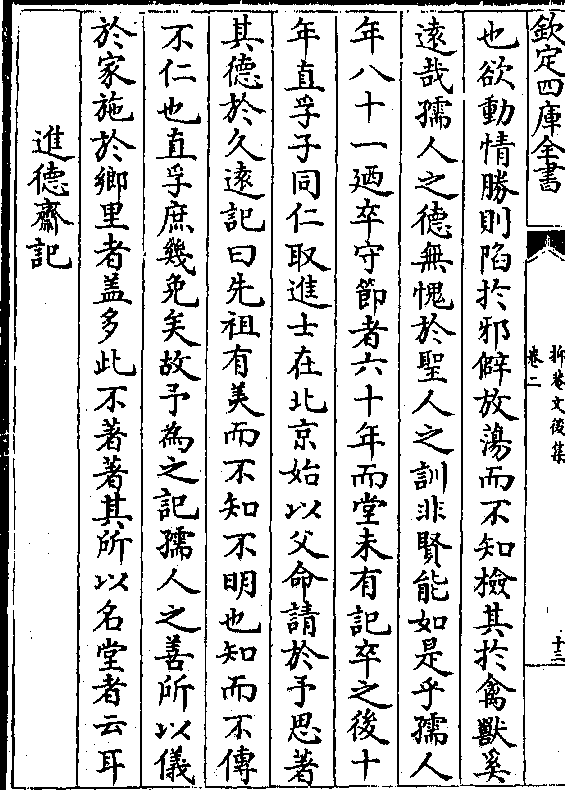 欽定四庫全書
抑菴文後集
卷二
十三
也欲動情勝則陷於邪僻放蕩而不知檢其於禽獸奚
遠哉孺人之德無愧於聖人之訓非賢能如是乎孺人
年八十一廼卒守節者六十年而堂未有記卒之後十
年直孚子同仁取進士在北京始以父命請於予思著
其德於久遠記曰先祖有美而不知不明也知而不傳
不仁也直孚庶幾免矣故予為之記孺人之善所以儀
於家施於鄉里者盖多此不著著其所以名堂者云耳
進德齋記